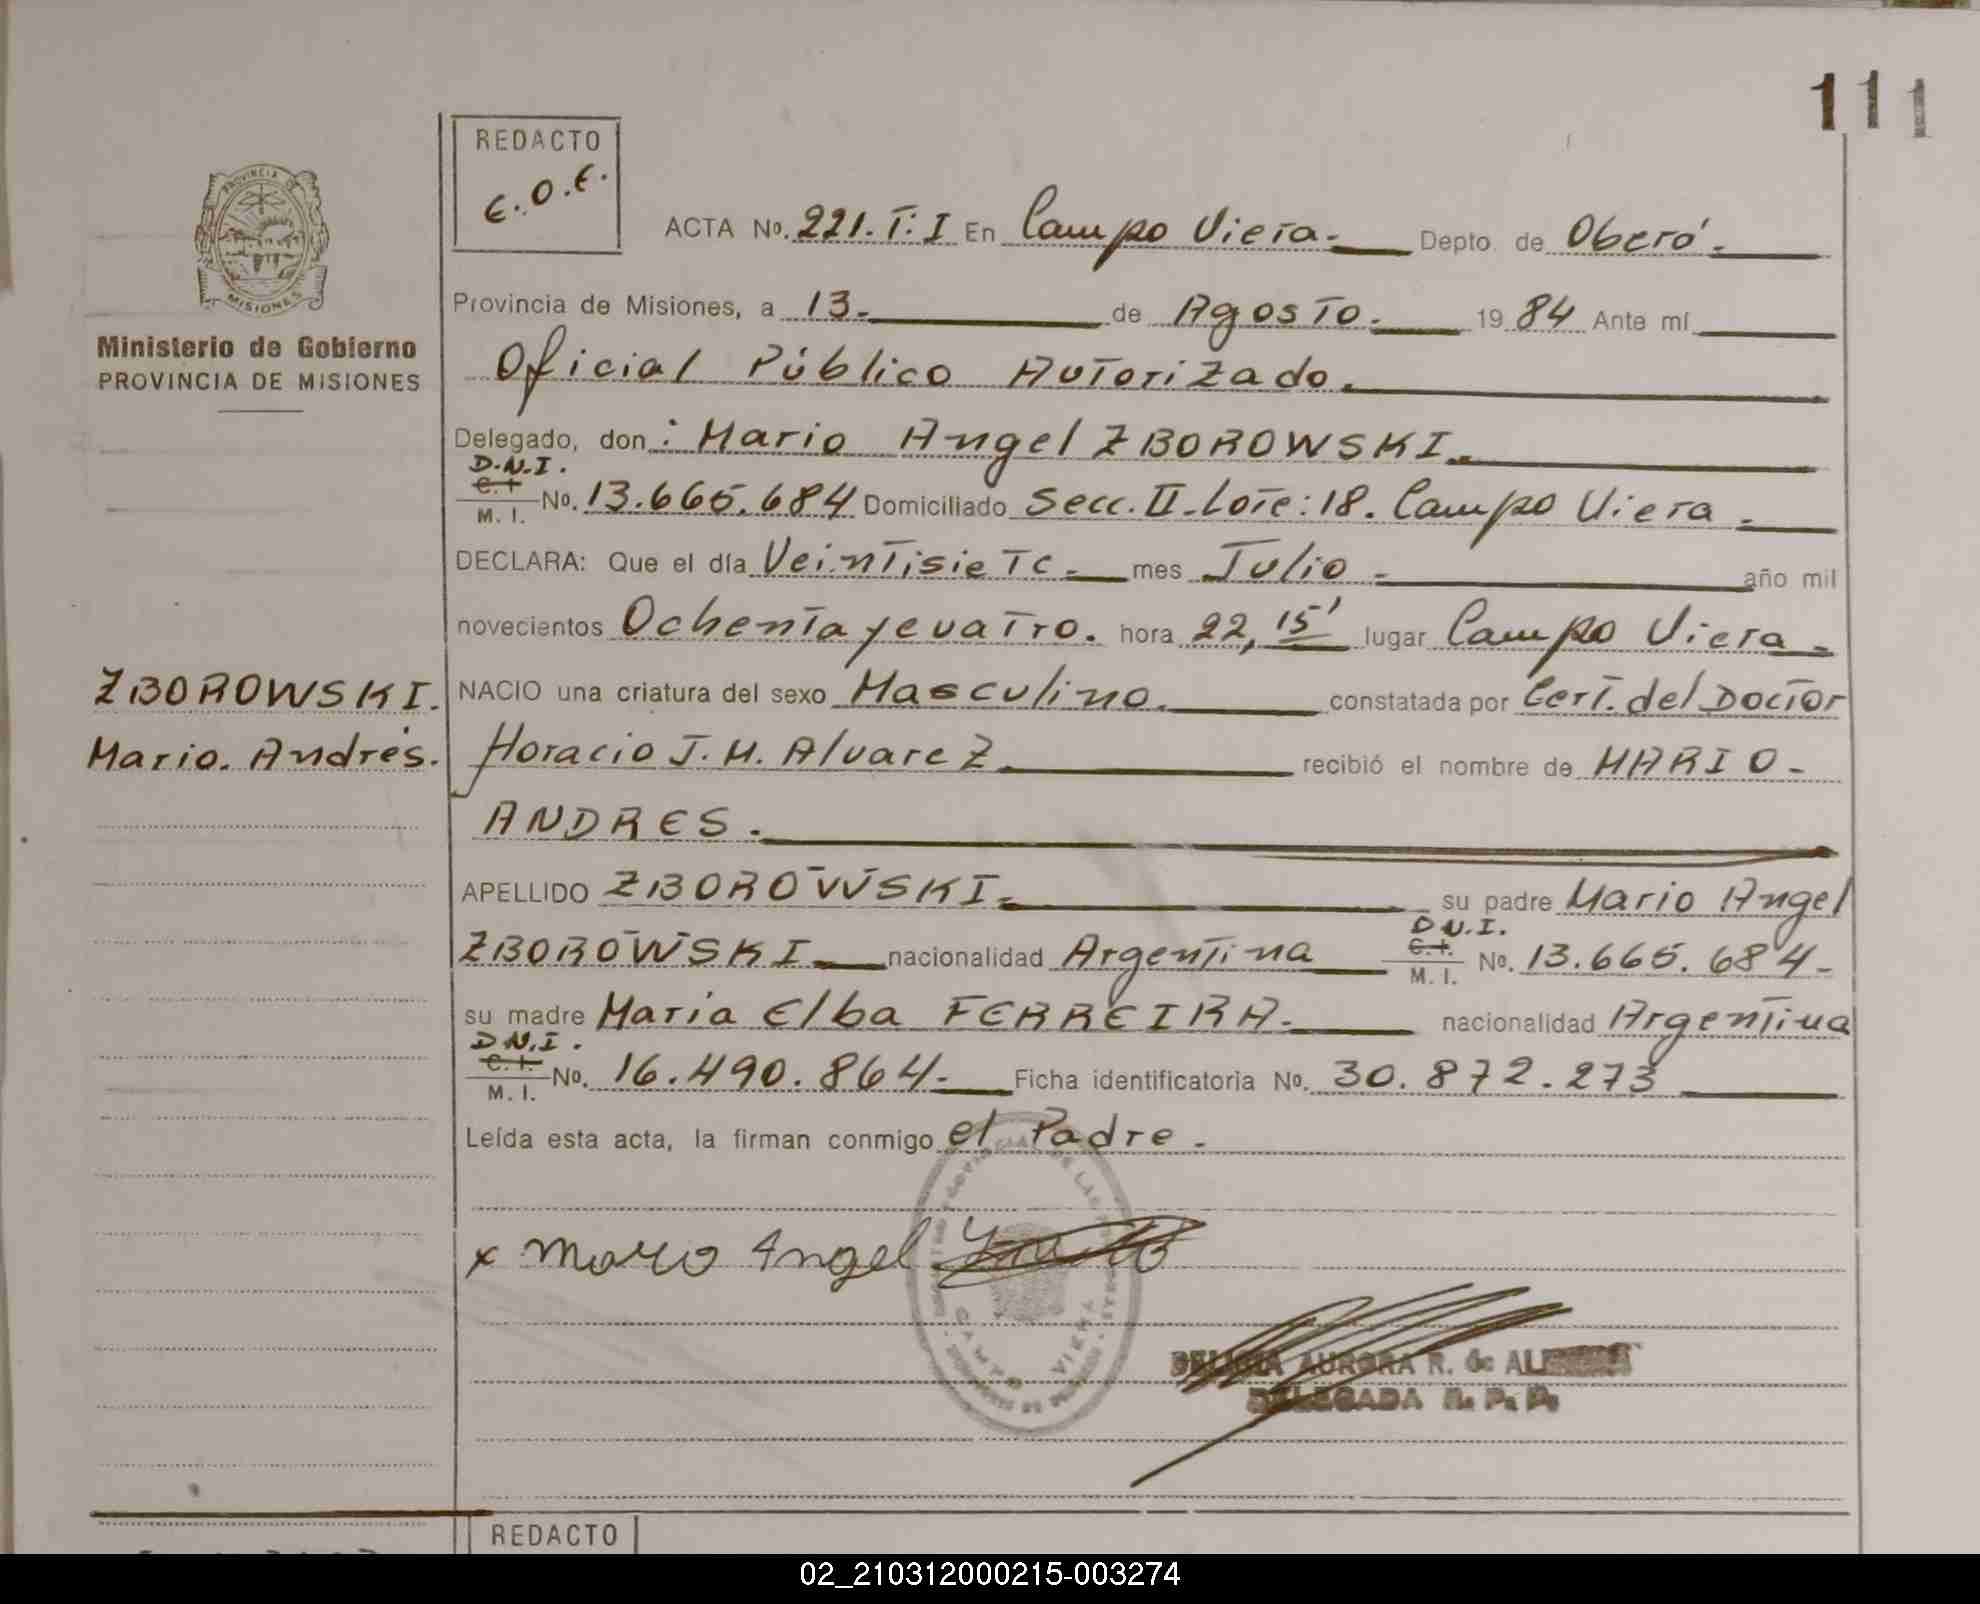 111
REDACTO
E.O.E.
PROVINCIA DE
MISIONES
Ministerio de Gobierno
PROVINCIA DE MISIONES
ACTA Nº. 221. T: I En Campo Viera.- Depto. de Oberá.-
Provincia de Misiones, a 13.- de Agosto.- 1984 Ante mí
Oficial Público Autorizado.
Delegado, don: Mario Angel ZBOROWSKI.
D.N.I.
C. I.
M. I.
Nº. 13.665.684 Domiciliado Secc. II. Lote: 18. Campo Viera.-
DECLARA: Que el día Veintisiete.- mes Julio.- año mil
novecientos Ochenta y cuatro. hora 22,15' lugar Campo Viera.-
ZBOROWSKI.
Mario. Andrés.
NACIO una criatura del sexo Masculino. constatada por Cert. del Doctor
Horacio J. M. Alvarez recibió el nombre de MARIO-
ANDRES.
APELLIDO ZBOROWSKI.- su padre Mario Angel
D.N.I.
ZBOROWSKI nacionalidad Argentina C. I. M. I. Nº. 13.665.684-
su madre María Elba FERREIRA.- nacionalidad Argentina
D.N.I.
C. I.
M. I.
Nº. 16.490.864.- Ficha identificatoria Nº. 30.872.273
Leída esta acta, la firman conmigo el Padre.-
x Mario Angel
CAMPO VIERA
AURORA R. de
DELEGADA R. P. P.
REDACTO
02_210312000215-003274